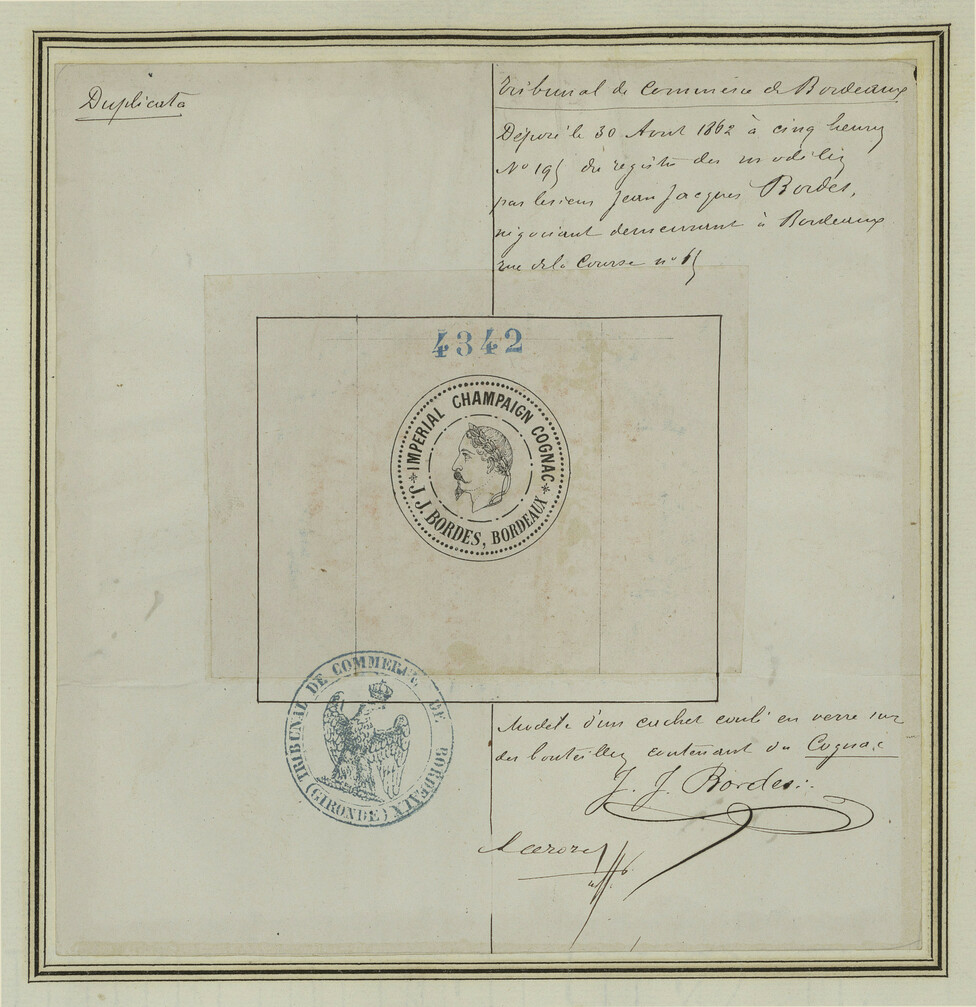 Duplicata
Tribunal de Commerce de Bordeaux
Déposé le 30 Aout 1862 à cinq heures
No 195 du registre des modèles
par le sieur Jean Jacques Bordes,
négociant demeurant à Bordeaux
rue de la Course no
4342
IMPERIAL CHAMPAIGN COGNAC
* J.J. BORDES, BORDEAUX *
TRIBUNAL DE COMMERCE DE BORDEAUX
(GIRONDE)
Modèle d'un cachet coulé en verre sur
des bouteilles contenant du Cognac
J. J. Bordes